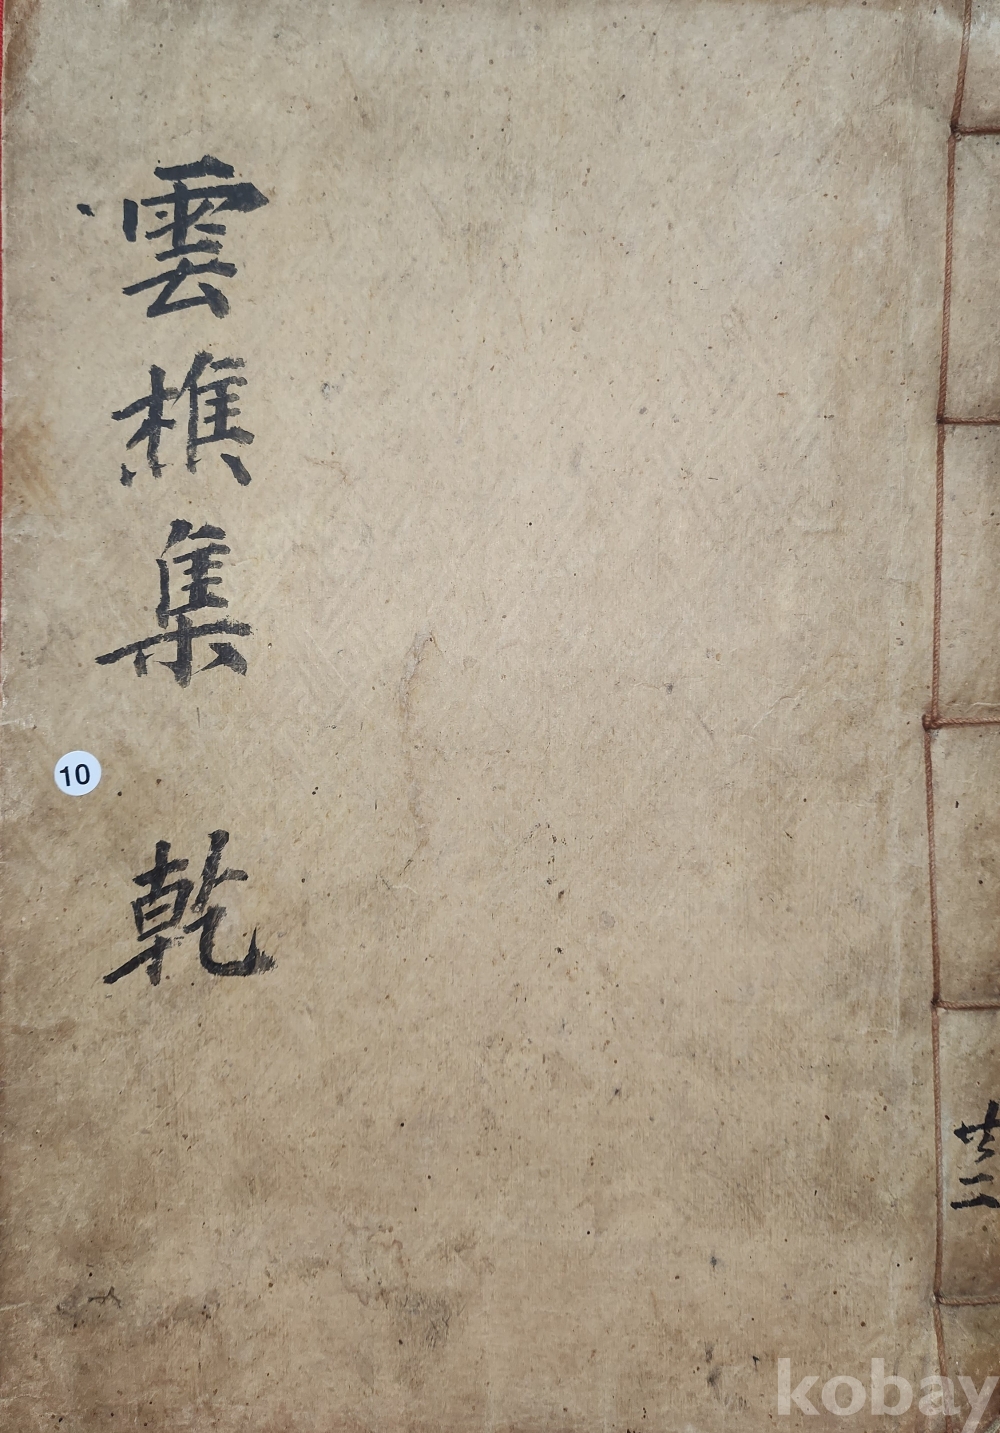 雲樵集 乾
10
共二
kobay